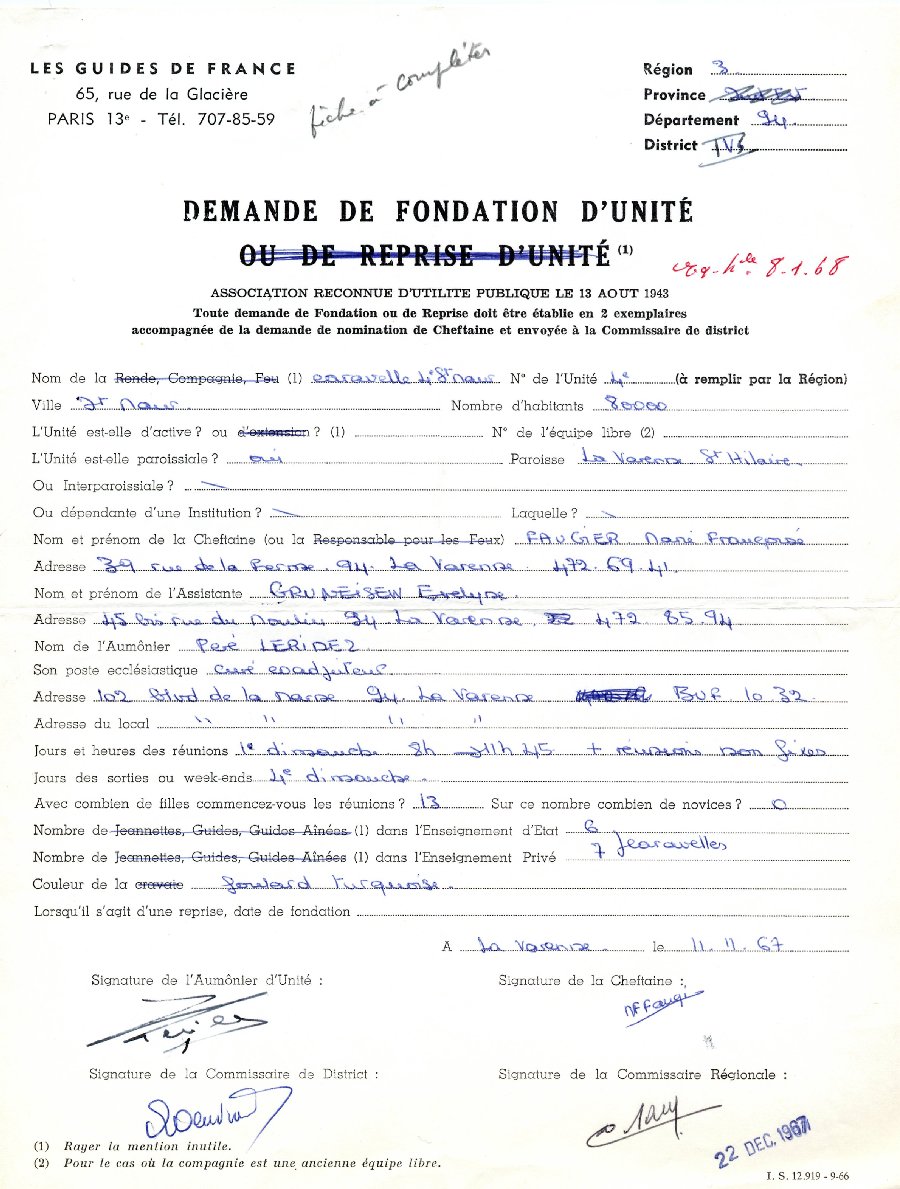 LES GUIDES DE FRANCE
65, rue de la Glacière
PARIS 13e - Tél. 707-85-59
fiche à compléter
Région 3
Province
Département 94
District TVS
DEMANDE DE FONDATION D'UNITÉ
OU DE REPRISE D'UNITÉ (1)
8.1.68
ASSOCIATION RECONNUE D'UTILITE PUBLIQUE LE 13 AOUT 1943
Toute demande de Fondation ou de Reprise doit être établie en 2 exemplaires
accompagnée de la demande de nomination de Cheftaine et envoyée à la Commissaire de district
Nom de la Ronde, Compagnie, Feu (1) caravelle 4e St Maur N° de l'Unité 4e (à remplir par la Région)
Ville St Maur Nombre d'habitants 80000
L'Unité est-elle d'active ? ou d'extension ? (1) N° de l'équipe libre (2)
L'Unité est-elle paroissiale ? oui Paroisse La Varenne St Hilaire
Ou Interparoissiale ?
Ou dépendante d'une Institution ? Laquelle ?
Nom et prénom de la Cheftaine (ou la Responsable pour les Feux) FAUGIER Marie Françoise
Adresse 39 rue de la Ferme 94. La Varenne 472.69.41.
Nom et prénom de l'Assistante GRUNEISEN Evelyne.
Adresse 45 bis rue du Moulin 94 La Varenne 472 85.94
Nom de l'Aumônier Père LERIDEZ
Son poste ecclésiastique curé coadjuteur.
Adresse 102 Blvd de la Marne 94. La Varenne BUF 10 32.
Adresse du local " " " "
Jours et heures des réunions 1e dimanche 8h → 11h 45 + réunions non fixes
Jours des sorties ou week-ends 4e dimanche.
Avec combien de filles commencez-vous les réunions ? 13 Sur ce nombre combien de novices ? 0
Nombre de Jeannettes, Guides, Guides Aînées (1) dans l'Enseignement d'Etat 6
Nombre de Jeannettes, Guides, Guides Aînées (1) dans l'Enseignement Privé 7 caravelles
Couleur de la cravate foulard turquoise.
Lorsqu'il s'agit d'une reprise, date de fondation
A La Varenne. le 11.11.67
Signature de l'Aumônier d'Unité : Signature de la Cheftaine :
Signature de la Commissaire de District : Signature de la Commissaire Régionale :
22 DEC. 1967
(1) Rayer la mention inutile.
(2) Pour le cas où la compagnie est une ancienne équipe libre.
I. S. 12.919 - 9-66